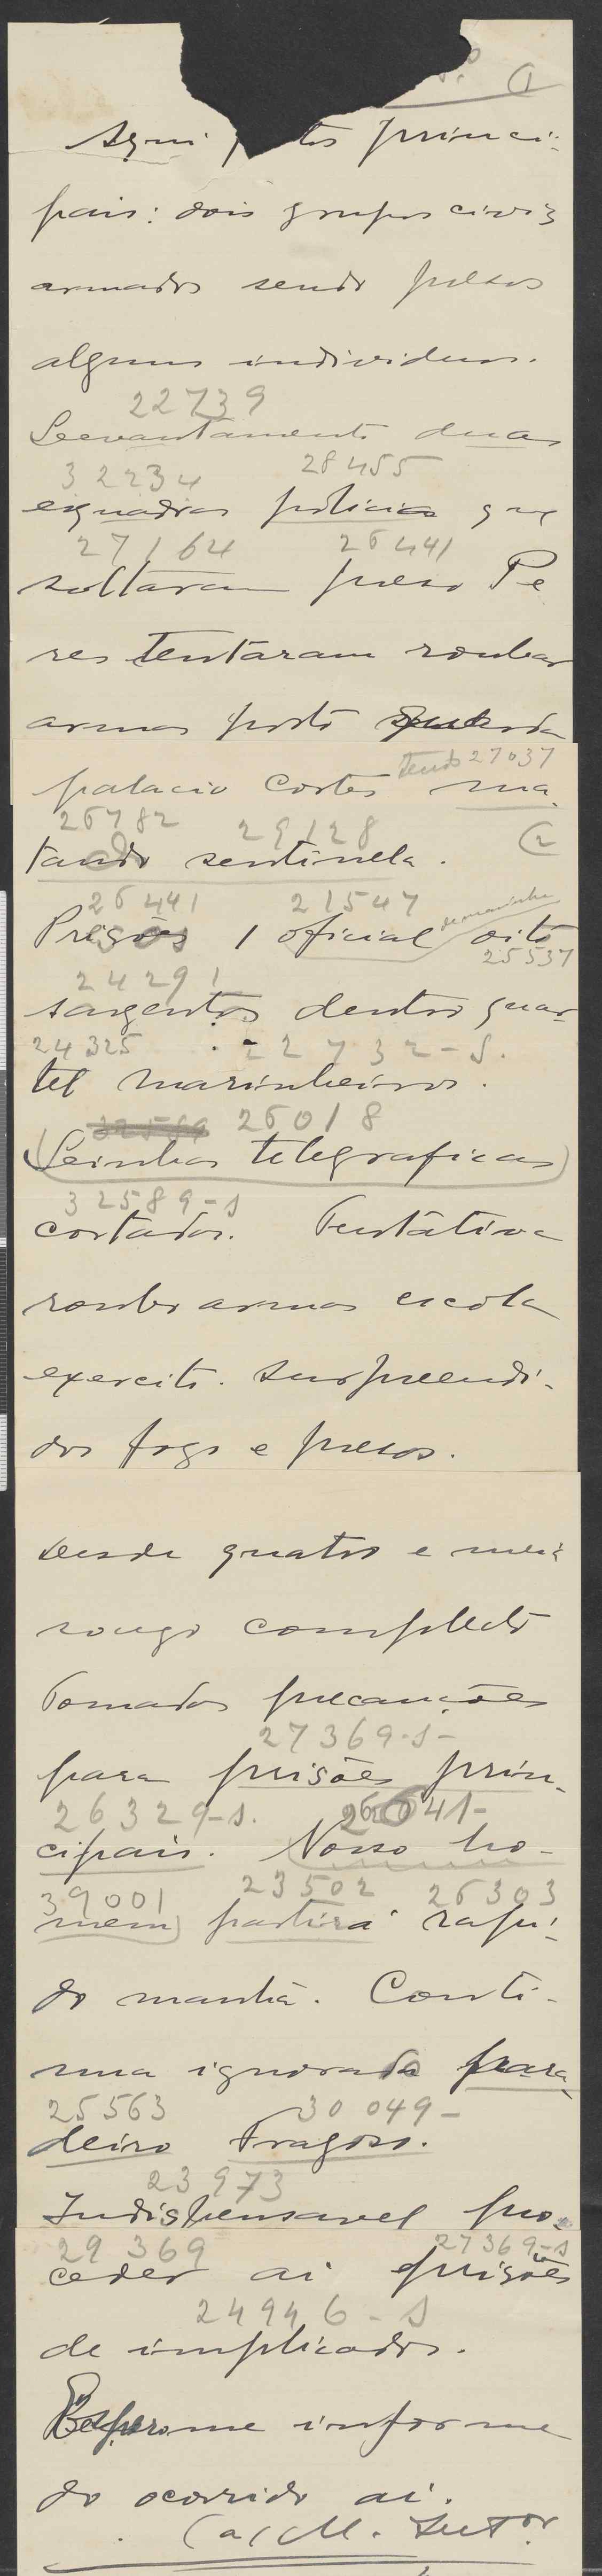 (1
Aqui p tos princi-
pais: dois grupos civis
armados sendo presos
alguns individuos.
22739
Levantamento duas
32234 28455
esquadras policia que
27164 26441
soltaram preso Pe
res tentaram roubar
armas posto guarda
palacio Cortes tendo 27037 ma-
26782 29128 (2
tando sentinela.
26441 21547 de marinha
Presos 1 oficial oito
24291 25537
sargentos dentro quar-
24325 22732-S.
tel marinheiros.
32589 26018
Leinhas telegraficas
32589-S
cortadas. Tentativa
roubo armas escola
exercito. Surpreendi-
dos fogo e presos.
Desde quatro e meia
socego completo
Tomadas precauções
27369-S-
para prisões prin-
26329-S. 26641-
cipais. Nosso ho-
39001 23502 26303
mem partirá rapi-
do manhã. Conti-
nua ignorado para-
25563 30049-
deiro Fragoso.
23973
Indispensavel pro-
29369 27369-S
ceder ai prisões
24946-S
de implicados.
Espero me informe
do ocorrido ai.
(a) M. Int.or